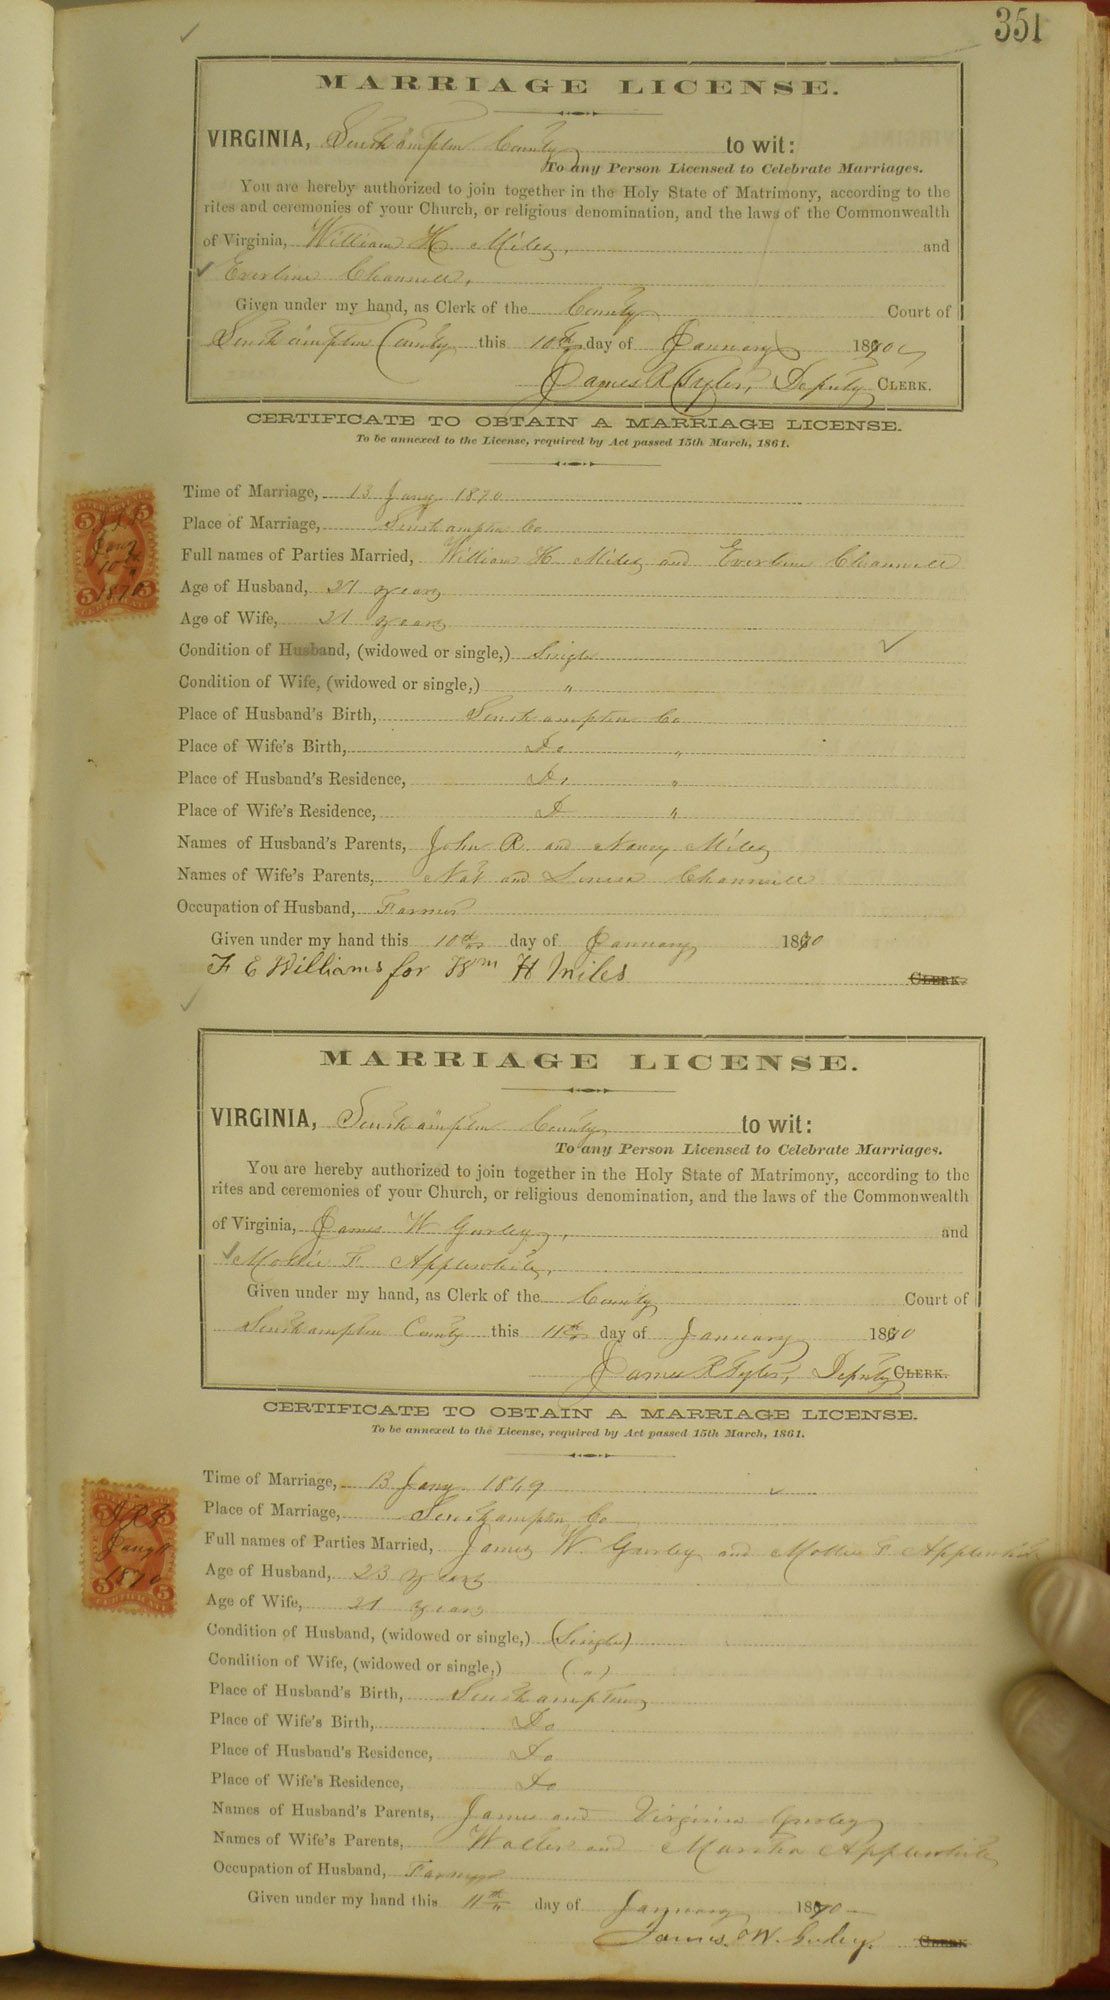 351
MARRIAGE LICENSE.
VIRGINIA, Southampton County to wit:
To any Person Licensed to Celebrate Marriages.
You are hereby authorized to join together in the Holy State of Matrimony, according to the
rites and ceremonies of your Church, or religious denomination, and the laws of the Commonwealth
of Virginia, William H Miles, and
Everline Channell,
Given under my hand, as Clerk of the County Court of
Southampton County this 10th day of January 1870
James R Tyler, Deputy CLERK.
CERTIFICATE TO OBTAIN A MARRIAGE LICENSE.
To be annexed to the License, required by Act passed 15th March, 1861.
Time of Marriage, 13 Jany 1870
Place of Marriage, Southampton Co
Full names of Parties Married, William H Miles and Everline Channell
Age of Husband, 21 years
Age of Wife, 21 years
Condition of Husband, (widowed or single,) Single
Condition of Wife, (widowed or single,) "
Place of Husband's Birth, Southampton Co
Place of Wife's Birth, Do "
Place of Husband's Residence, Do "
Place of Wife's Residence, D "
Names of Husband's Parents, John R. and Nancy Miles
Names of Wife's Parents, Nat and Louisa Channell
Occupation of Husband, Farmer
Given under my hand this 10th day of January 1870
F E Williams for Wm H Miles CLERK.
5 5
J R T
Jany
10th
1870
5 5
MARRIAGE LICENSE.
VIRGINIA, Southampton County to wit:
To any Person Licensed to Celebrate Marriages.
You are hereby authorized to join together in the Holy State of Matrimony, according to the
rites and ceremonies of your Church, or religious denomination, and the laws of the Commonwealth
of Virginia, James W Gurley, and
Mollie F Applewhite,
Given under my hand, as Clerk of the County Court of
Southampton County this 11th day of January 1870
James R Tyler, Deputy CLERK.
CERTIFICATE TO OBTAIN A MARRIAGE LICENSE.
To be annexed to the License, required by Act passed 15th March, 1861.
Time of Marriage, 13 Jany 1869
Place of Marriage, Southampton Co
Full names of Parties Married, James W. Gurley and Mollie F Applewhite
Age of Husband, 23 years
Age of Wife, 21 years
Condition of Husband, (widowed or single,) (Single)
Condition of Wife, (widowed or single,) (")
Place of Husband's Birth, Southampton
Place of Wife's Birth, Do
Place of Husband's Residence, Do
Place of Wife's Residence, Do
Names of Husband's Parents, James and Virginia Gurley
Names of Wife's Parents, Walter and Martha Applewhite
Occupation of Husband, Farmer
Given under my hand this 11th day of January 1870
James. W. Gurley. CLERK
5 5
J R T
Jany 11
1870
5 5